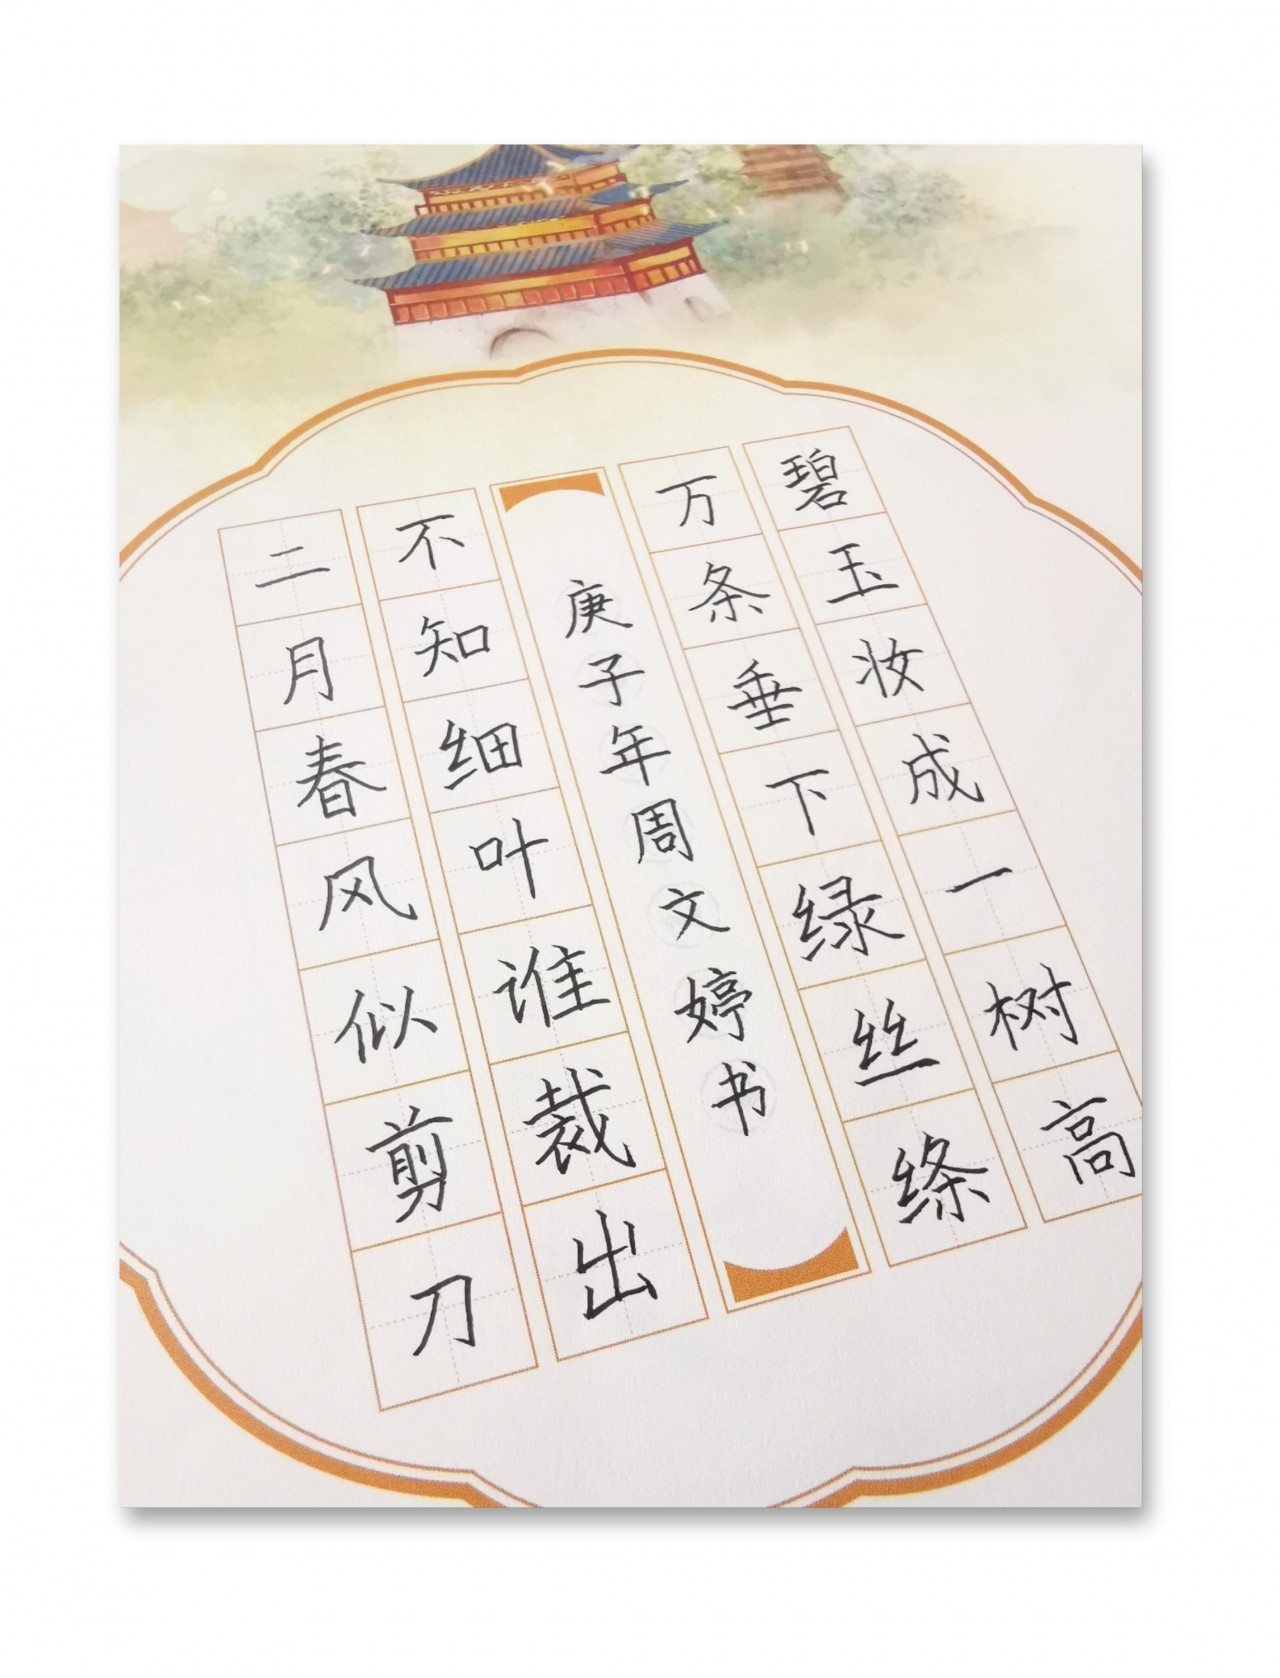 碧玉妆成一树高
万条垂下绿丝绦
庚子年周文婷书
不知细叶谁裁出
二月春风似剪刀